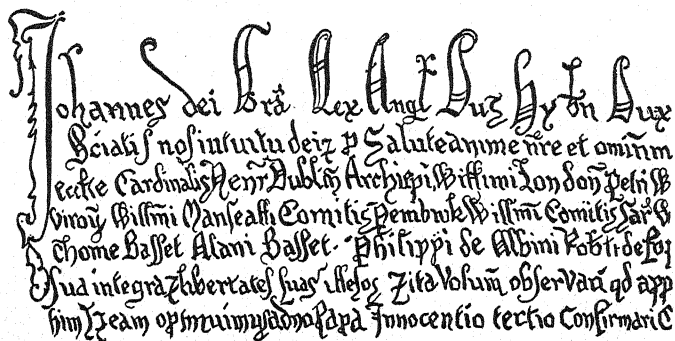 Johannes dei Grā Rex Angl Dns Hybn Dux
Sciatis nos intuitu dei z p Salute anime nr̄e et omnīum
eccłe Cardinalis Henr̄ Dublin̄ Archiepi Willimi London̄ Petri W
Willm̄i Marscalli Comitis Pembruk Willm̄i Comitis Sar̄ W
Thome Basset Alani Basset. Philippi de Albini Rob̄ti de Rop
sua integra z libertates suas illesas z ita volum̄ observari qd app
z eam optinuimus a dno Papa Innocentio tertio Confirmari C